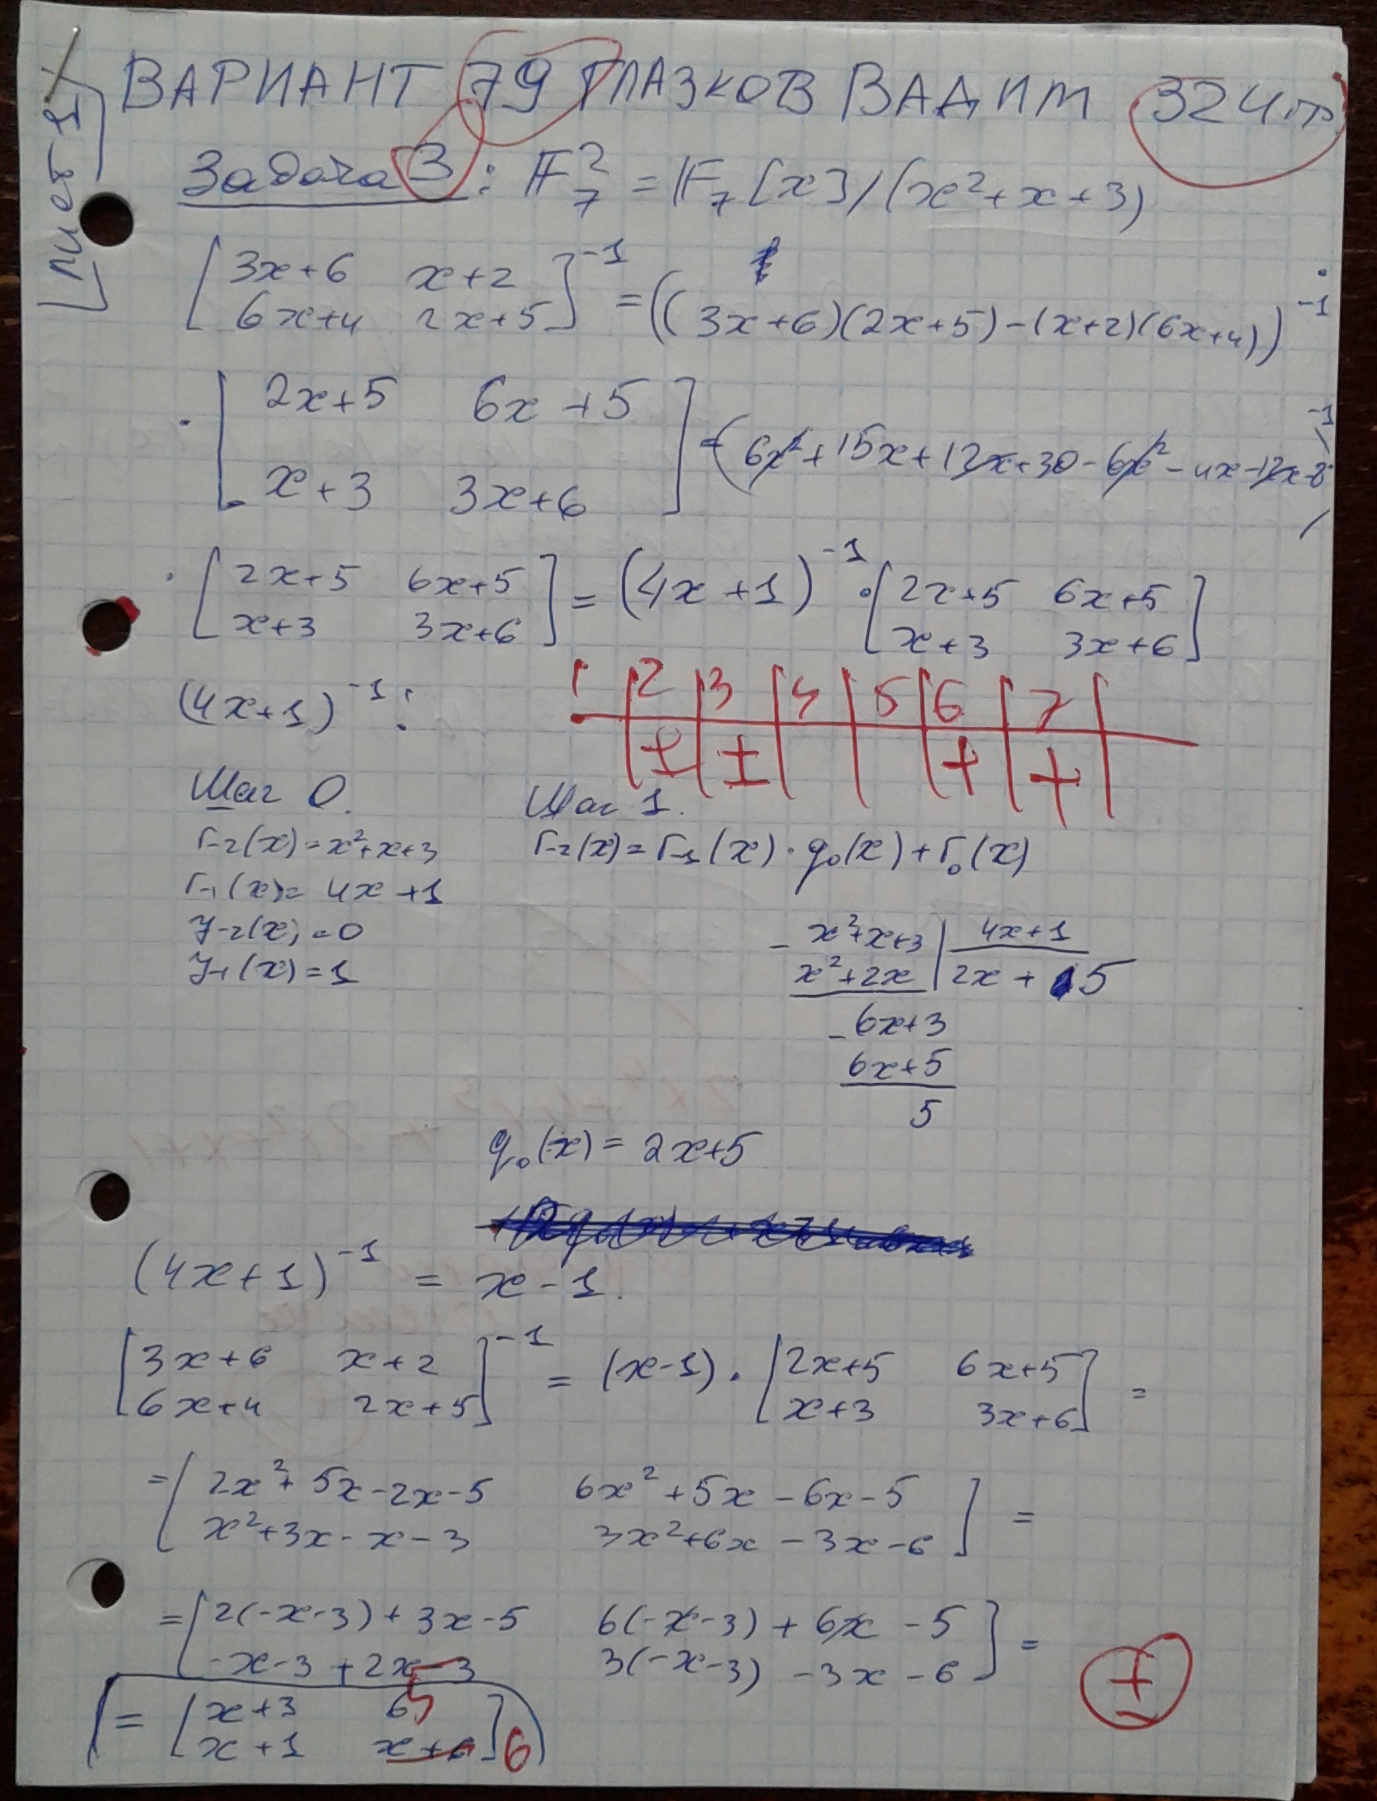 Лист 1
ВАРИАНТ 79 ГЛАЗКОВ ВАДИМ 324гр
Задача 3: F₇² = F₇[x]/(x²+x+3)
[3x+6 x+2
6x+4 2x+5]⁻¹ = ((3x+6)(2x+5)-(x+2)(6x+4))⁻¹ ·
· [2x+5 6x+5
x+3 3x+6] = (6x²+15x+12x+30-6x²-4x-12x-8)⁻¹
· [2x+5 6x+5
x+3 3x+6] = (4x+1)⁻¹ · [2x+5 6x+5
x+3 3x+6]
1 2 3 4 5 6 7
± ± + +
(4x+1)⁻¹:
Шаг 0. Шаг 1.
r₋₂(x)=x²+x+3 r₋₂(x)=r₋₁(x)·q₀(x)+r₀(x)
r₋₁(x)=4x+1
y₋₂(x)=0
y₋₁(x)=1
- x²+x+3 | 4x+1
x²+2x | 2x+5
- 6x+3
6x+5
5
q₀(x)=2x+5
(4x+1)⁻¹ = x-1.
[3x+6 x+2
6x+4 2x+5]⁻¹ = (x-1)·[2x+5 6x+5
x+3 3x+6] =
=[2x²+5x-2x-5 6x²+5x-6x-5
x²+3x-x-3 3x²+6x-3x-6] =
=[2(-x-3)+3x-5 6(-x-3)+6x-5
-x-3+2x-3 3(-x-3)-3x-6] =
±
= [x+3 6 5
x+1 x+6] 6